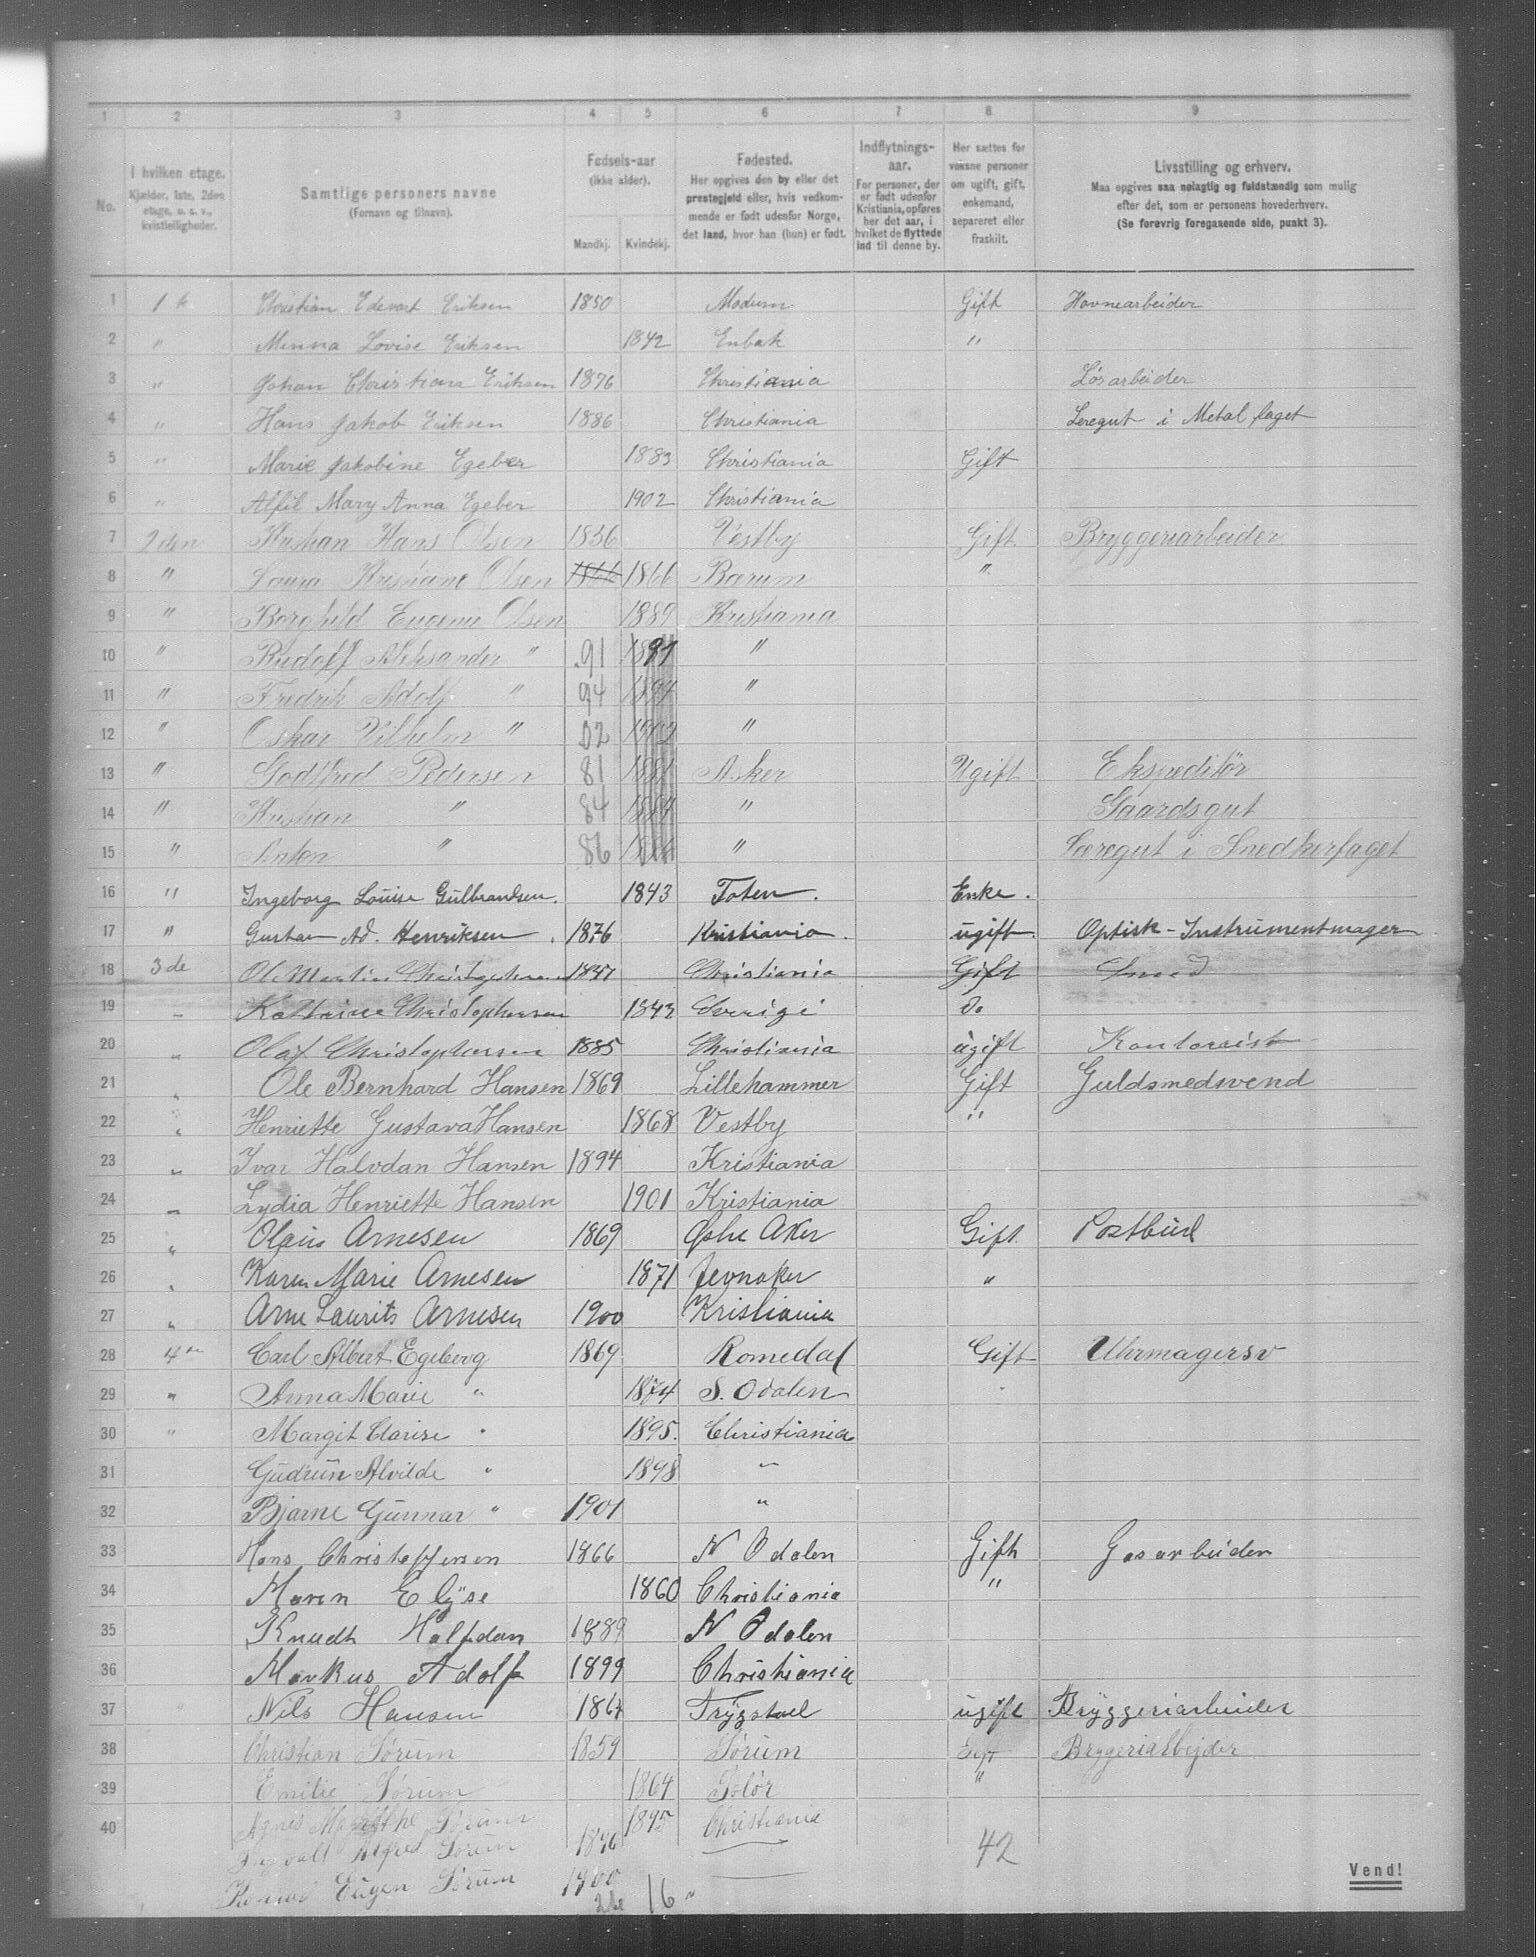 1 2 3 4 5 6 7 8 9
No. I hvilken etage. Kjælder, 1ste, 2den etage, o. s. v., kvistleiligheder. Samtlige personers navne (Fornavn og tilnavn). Fødsels-aar (ikke alder). Mandkj. Kvindekj. Fødested. Her opgives den by eller det prestegjeld eller, hvis vedkommende er født udenfor Norge, det land, hvor han (hun) er født. Indflytnings-aar. For personer, der er født udenfor Kristiania, opføres her det aar, i hvilket de flyttede ind til denne by. Her sættes for voksne personer om ugift, gift, enkemand, separeret eller fraskilt. Livsstilling og erhverv. Maa opgives saa nøiagtig og fuldstændig som mulig efter det, som er personens hovederhverv. (Se forøvrig foregaaende side, punkt 3).
1 1 Christian Edevart Eriksen 1850 Modum Gift Havnearbeider
2 " Minna Lovise Eriksen 1842 Enbak "
3 " Johan Christian Eriksen 1876 Christiania Løsarbeider
4 " Hans Jakob Eriksen 1886 Christiania Leregut i Metal faget
5 " Marie Jakobine Egeber 1883 Christiania Gift
6 " Alfil Mary Anna Egeber 1902 Christiania
7 2den Kristian Hans Olsen 1856 Vestby Gift Bryggeriarbeider
8 " Laura Kristiane Olsen 1866 1866 Barum "
9 " Borghild Eugenie Olsen 1889 Kristiania
10 " Rudolf Aleksander " 91 1891 "
11 " Fredrik Adolf " 94 1894 "
12 " Oskar Vilhelm " 02 1902 "
13 " Godtfred Pedersen 81 1881 Asker Ugift Ekspeditør
14 " Kristian " 84 1884 " Gaardsgut
15 " Anton " 86 1886 " Læregut i Snedkerfaget
16 " Ingeborg Louise Gulbrandsen. 1843 Toten. Enke.
17 " Gustav Ad. Henriksen. 1876 Kristiania. ugift. Optisk-Instrumentmager
18 3de Ole Martin Christophersen 1847 Christiania Gift Smed
19 " Kathrine Christophersen 1843 Sverige do
20 " Olaf Christophersen 1885 Christiania ugift Kontorist
21 " Ole Bernhard Hansen 1869 Lillehammer Gift Guldsmedsvend
22 " Henriette Gustava Hansen 1868 Vestby "
23 " Ivar Halvdan Hansen 1894 Kristiania
24 " Lydia Henriette Hansen 1901 Kristiania
25 " Olaus Arnesen 1869 Østre Aker Gift Postbud
26 " Karen Marie Arnesen 1871 Jevnaker "
27 " Arne Laurits Arnesen 1900 Kristiania
28 4de Carl Albert Egeberg 1869 Romedal Gift Uhrmagersv
29 " Anna Marie " 1874 S. Odalen "
30 " Margit Clarise " 1895. Christiania
31 Gudrun Alvilde " 1898 "
32 Bjarne Gunnar " 1901 "
33 Hans Christoffersen 1866 N Odalen Gift Gasarbeider
34 Maren Elise 1860 Christiania "
35 Knudth Halfdan 1889 N Odalen
36 Markus Adolf 1899 Christiania
37 " Nils Hansen 1867 Trygstad ugift Bryggeriarbeider
38 Christian Sørum 1859 Sørum Gift Bryggeriarbejder
39 Emilie Sørum 1864 Solør "
40 Agnes Sørum 1895 Christiania
Alfred Sørum 1896
Eugen Sørum 1900
42
16
Vend!